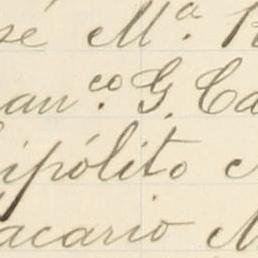 sé Mª. R
an^co. G. Ca
ipólito
acario M